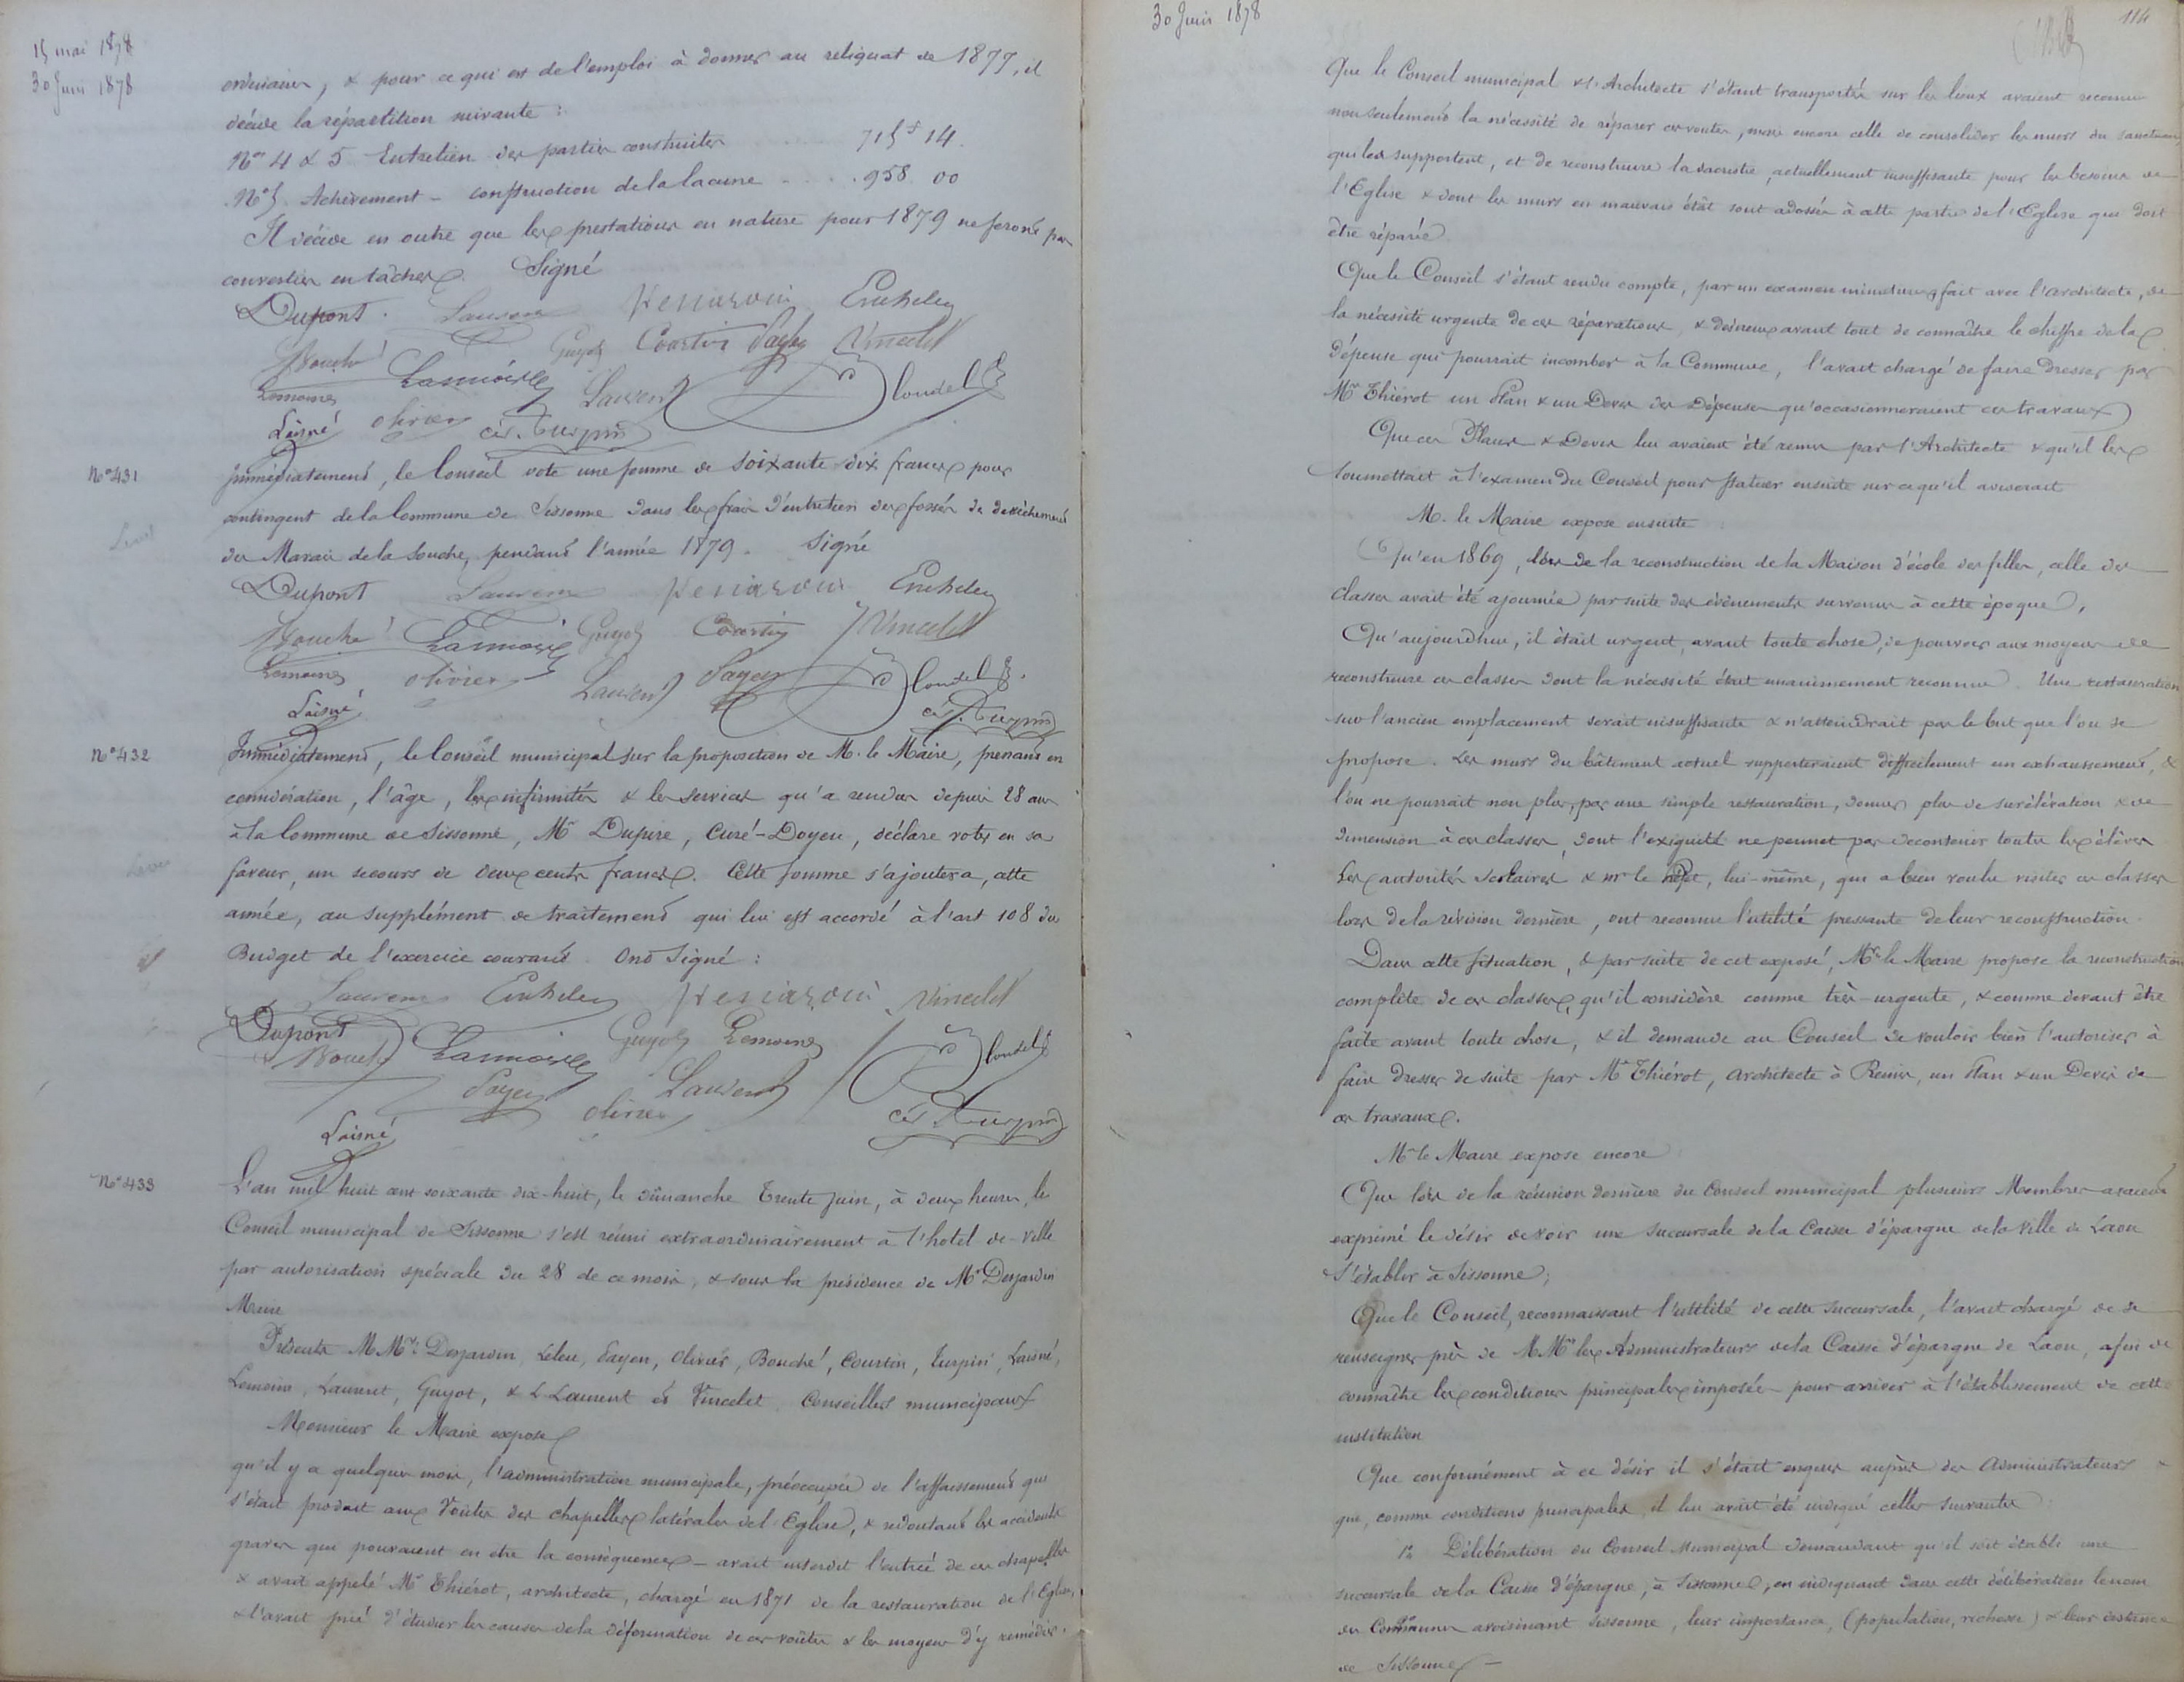 15 mai 1878
30 Juin 1878
ordinaires, & pour ce qui est de l'emploi à donner au reliquat de 1877, il
décide la répartition suivante :
Nos 4 & 5 Entretien des parties construites ..... 715 f 14
No 5. Achèvement - construction de la lacune .... 958 00
Il décide en outre que les prestations en nature pour 1879 ne seront pas
converties en tâches. Signé
Dupont. Laurent Penasson
Bouché Guyot Courtin Payen Vincelet
Lemoine Lannois Laurent Blondel
Laisné Olivier Turpin
No 431
Immédiatement, le Conseil vote une somme de soixante dix francs pour
contingent de la Commune de Sissonne dans les frais d'entretien des fossés de dessèchement
des Marais de la Souche, pendant l'année 1879. Signé
Dupont Laurent
Bouché Lannois Guyot Courtin Vincelet
Lemoine Olivier Laurent Payen Blondel
Laisné Turpin
No 432
Immédiatement, le Conseil municipal sur la proposition de M. le Maire, prenant en
considération, l'âge, les infirmités & les services qu'a rendus depuis 28 ans
à la Commune de Sissonne, Mr Dupire, Curé-Doyen, déclare voter en sa
faveur, un secours de deux cents francs. Cette somme s'ajoutera, cette
année, au supplément de traitement qui lui est accordé à l'art 108 du
Budget de l'exercice courant. Ont Signé :
Laurent Vincelet
Dupont Guyot Lemoine
Bouché Lannois Blondel
Payen Laurent
Olivier Turpin
Laisné
No 433
L'an mil huit cent soixante dix-huit, le dimanche Trente Juin, à deux heures, le
Conseil municipal de Sissonne s'est réuni extraordinairement à l'hotel de-ville
par autorisation spéciale du 28 de ce mois, & sous la présidence de Mr Desjardin
Maire
Présents M Mrs Desjardin, Leleu, Payen, Olivier, Bouché, Courtin, Turpin, Laisné,
Lemoine, Laurent, Guyot, & L Laurent et Vincelet Conseillers municipaux
Monsieur le Maire expose
qu'il y a quelques mois, l'administration municipale, préoccupée de l'affaissement qui
s'était produit aux Voûtes des chapelles latérales de l'Eglise, & redoutant les accidents
graves qui pouvaient en etre la conséquence - avait interdit l'entrée de ces chapelles
& avait appelé Mr Thiérot, architecte, chargé en 1871 de la restauration de l'Eglise,
& l'avait prié d'étudier les causes de la déformation de ces voûtes & les moyens d'y remédier.
30 Juin 1878
114
Que le Conseil municipal & l'Architecte s'étant transportés sur les lieux avaient reconnu
non seulement la nécessité de réparer ces voutes, mais encore celle de consolider les murs du sanctuaire
qui les supportent, et de reconstruire la sacristie, actuellement insuffisante pour les besoins de
l'Eglise & dont les murs en mauvais état sont adossés à cette partie de l'Eglise qui doit
être réparée
Que le Conseil s'étant rendu compte, par un examen minutieux fait avec l'architecte, de
la nécessité urgente de ces réparations, & desireux avant tout de connaître le chiffre de la
dépense qui pourrait incomber à la Commune, l'avait chargé de faire dresser par
Mr Thiérot un Plan & un Devis des Dépenses qu'occasionneraient ces travaux
Que ces Plans & Devis lui avaient été remis par l'Architecte & qu'il les
soumettait à l'examen du Conseil pour statuer ensuite sur ce qu'il aviserait
M. le Maire expose ensuite :
Qu'en 1869, lors de la reconstruction de la Maison d'école des filles, celle des
classes avait été ajournée par suite des évènements survenus à cette époque,
Qu'aujourd'hui, il était urgent, avant toute chose, de pourvoir aux moyens de
reconstruire ces classes dont la nécessité était unanimement reconnue. Une restauration
sur l'ancien emplacement serait insuffisante & n'atteindrait pas le but que l'on se
propose. Les murs du bâtiment actuel supporteraient difficilement un exhaussement, &
l'on ne pourrait non plus, par une simple restauration, donner plus de surélévation & de
dimension à ces classes, dont l'exiguité ne permet pas de contenir toutes les élèves
Les autorités scolaires & Mr le Préfet, lui-même, qui a bien voulu visiter ces classes
lors de la révision dernière, ont reconnu l'utilité pressante de leur reconstruction.
Dans cette situation, & par suite de cet exposé, Mr le Maire propose la reconstruction
complète de ces classes, qu'il considère comme très-urgente, & comme devant être
faite avant toute chose, & il demande au Conseil de vouloir bien l'autoriser à
faire dresser de suite par Mr Thiérot, Architecte à Reims, un Plan & un Devis de
ces travaux.
Mr le Maire expose encore
Que lors de la réunion dernière du Conseil municipal plusieurs Membres avaient
exprimé le désir de voir une succursale de la Caisse d'épargne de la ville de Laon
s'établir à Sissonne;
Que le Conseil, reconnaissant l'utilité de cette succursale, l'avait chargé de se
renseigner près de M Mrs les Administrateurs de la Caisse d'épargne de Laon, afin de
connaître les conditions principales imposées pour arriver à l'établissement de cette
institution
Que conformément à ce désir il s'était enquis auprès des Administrateurs &
que, comme conditions principales, il lui avait été indiqué celles suivantes :
1o Délibération du Conseil Municipal demandant qu'il soit établi une
succursale de la Caisse d'épargne, à Sissonne, en indiquant dans cette délibération le nom
des Communes avoisinant Sissonne, leur importance, (population, richesse) & leur distance
de Sissonne -